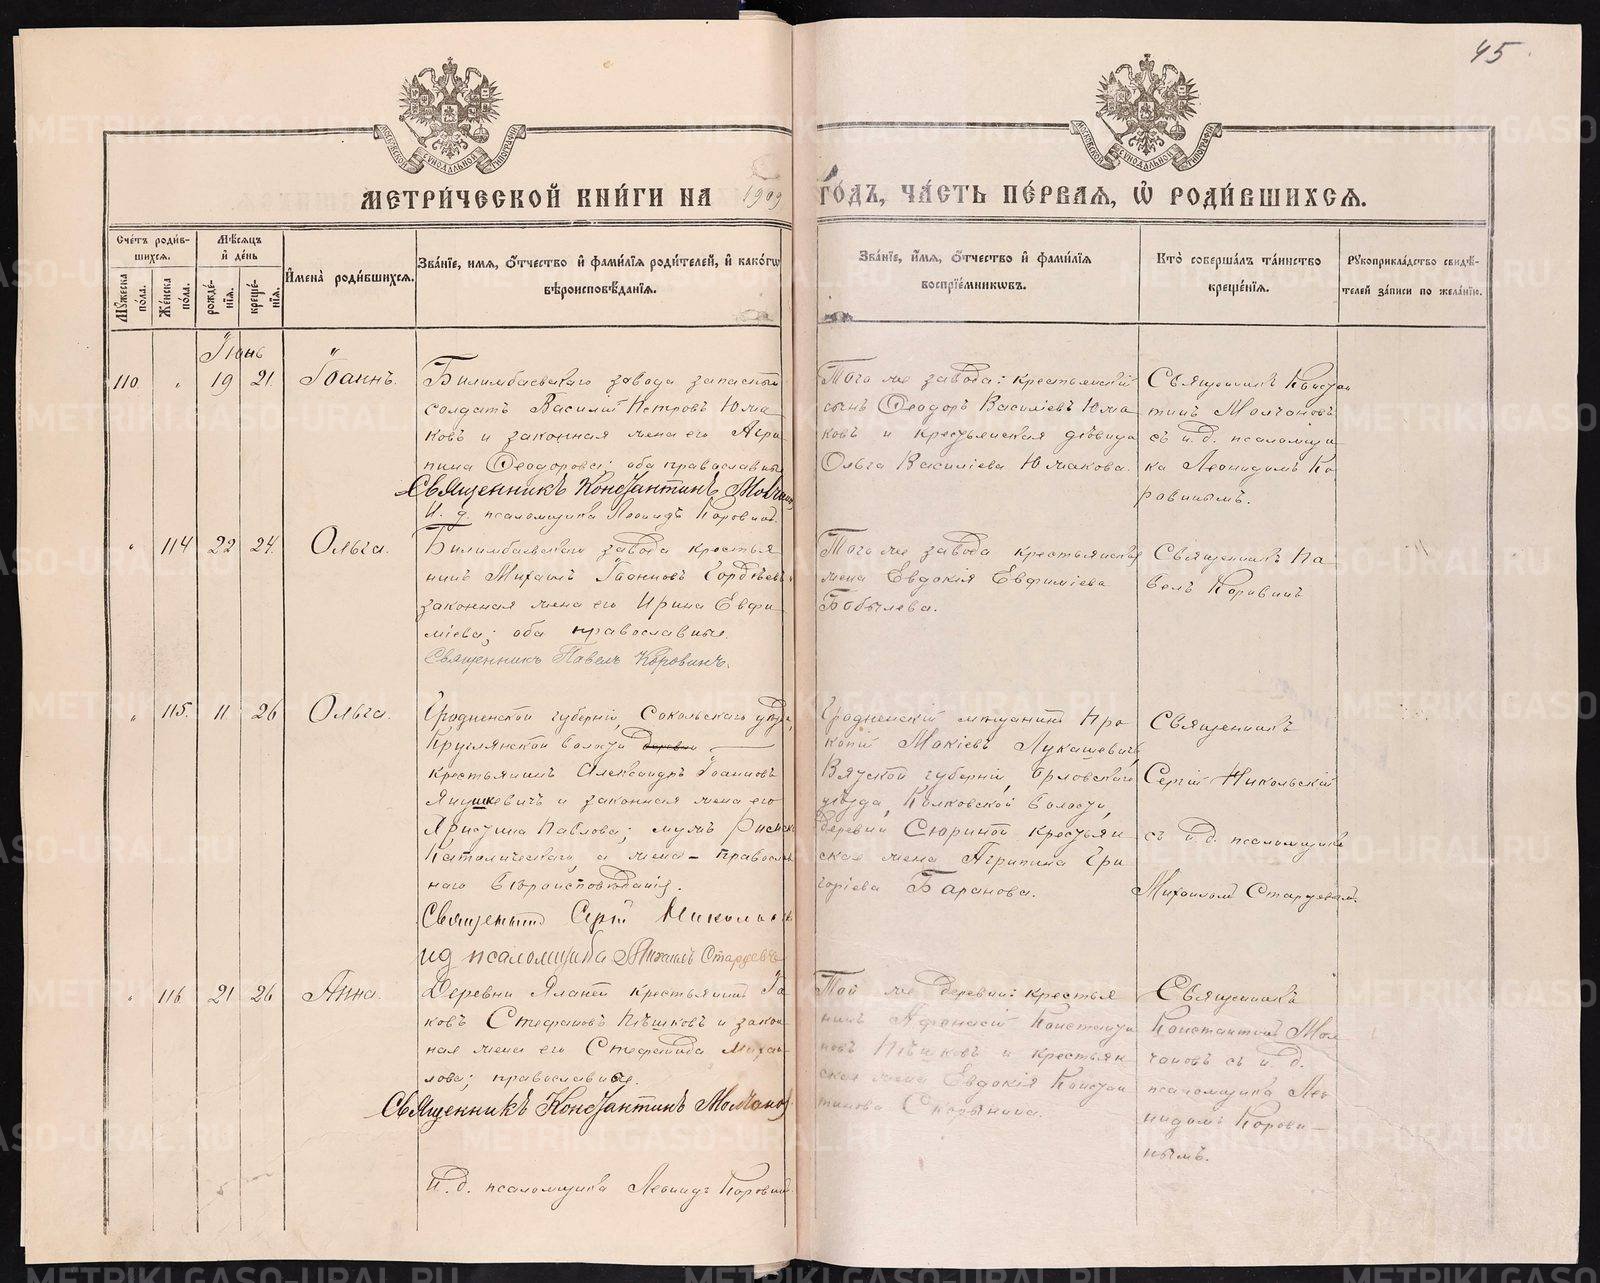 45
МОСКОВСКОЙ СѴНОДАЛЬНОЙ ТИПОГРАФІИ
МОСКОВСКОЙ СѴНОДАЛЬНОЙ ТИПОГРАФІИ
МЕТРИ́ЧЕСКОЙ КНИ́ГИ НА 1909 ГО́ДЪ, ЧА́СТЬ ПЕ́РВАЯ, Ѡ҆ РОДИ́ВШИХСЯ.
Сче́тъ роди́в-
шихся.
Му́жеска по́ла.
Же́нска по́ла.
Мѣ́сяцъ
и҆ де́нь
рожде́-
нїя.
креще́-
нїя.
И҆мена̀ роди́вшихся.
Зва́нїе, и҆мя, ѻ҆́тчество и҆ фами́лїя роди́телей, и҆ како́гѡ
вѣроисповѣ́данїя.
Зва́нїе, и҆́мя, ѻ҆́тчество и҆ фами́лїя
воспрїе́мникѡвъ.
Кто̀ соверша́лъ та́инство
креще́нїя.
Рукоприкла́дство свидѣ́-
телей за́писи по жела́нїю.
Іюнь
110 " 19 21 Іоаннъ.
Билимбаевскаго завода запасный
солдатъ Василій Петровъ Юма
ковъ и законная жена его Агри
пина Ѳеодорова; оба православные
Священникъ Константинъ Молчановъ
И. д. псаломщика Леонидъ Коровинъ.
Того же завода: крестьянскій
сынъ Ѳеодоръ Васильевъ Юма
ковъ и крестьянская дѣвица
Ольга Василіева Юмакова.
Священникъ Констан
тинъ Молчановъ
съ и. д. псаломщи
ка Леонидомъ Ко
ровинымъ.
" 114 22 24 Ольга.
Билимбаевскаго завода крестья
нинъ Михаилъ Іоанновъ Гордѣевъ и
законная жена его Ирина Евфи
міева; оба православные.
Священникъ Павелъ Коровинъ.
Того же завода крестьянская
жена Евдокія Евфиміева
Бобылева.
Священникъ Па
велъ Коровинъ
" 115. 11 26 Ольга.
Гродненской губерніи, Сокольскаго уѣзда,
Круглянской волости деревни
крестьянинъ Александръ Іоанновъ
Янушкевичъ и законная жена его
Христина Павлова; мужъ Римско
Католическаго, а жена - православ
наго вѣроисповѣданія.
Священникъ Сергій Никольскій
ид псаломщика Михаилъ Старцевъ
Гродненскій мѣщанинъ Про
копій Мокіевъ Лукашевичъ,
Вятской губерніи, Орловскаго
уѣзда, Колковской волости,
деревни Сюриной крестьян
ская жена Агрипина Гри
горіева Баранова.
Священникъ
Сергій Никольскій
съ и д. псаломщика
Михаиломъ Старцевымъ.
" 116 21 26 Анна.
Деревни Яланей крестьянинъ Іа
ковъ Стефановъ Пѣшковъ и закон
ная жена его Стефанида Михаи
лова; православные.
Священникъ Константинъ Молчановъ
И. д. псаломщика Леонидъ Коровинъ
Той же деревни: крестья
нинъ Афанасій Константи
новъ Пѣшковъ и крестьян
ская жена Евдокія Констан
тинова
Священникъ
Константинъ Мол
чановъ съ и д.
псаломщика Лео
нидомъ Корови-
нымъ.
METRIKI.GASO-URAL.RU